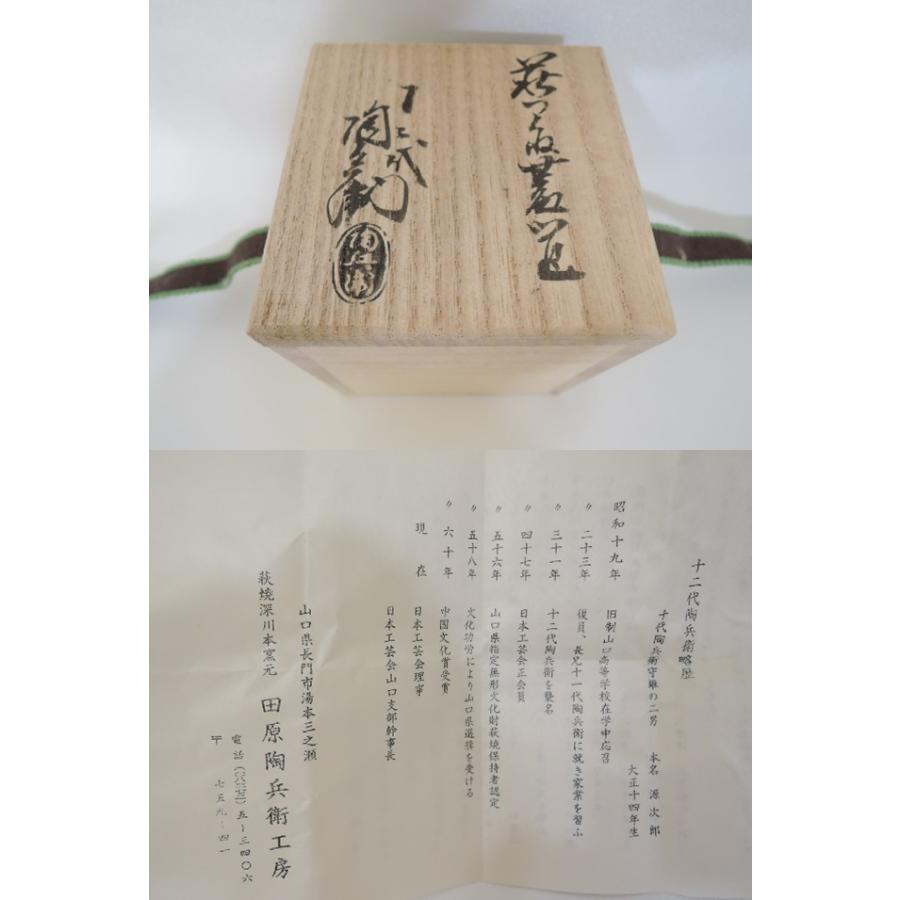 十二代
陶兵衛
十二代陶兵衛略歴
十代陶兵衛守雄の二男 本名 源次郎
大正十四年生
昭和十九年 旧制山口高等学校在学中応召
〃 二十三年 復員、長兄十一代陶兵衛に就き家業を習ふ
〃 三十一年 十二代陶兵衛を襲名
〃 四十七年 日本工芸会正会員
〃 五十六年 山口県指定無形文化財萩焼保持者認定
〃 五十八年 文化功労により山口県選奨を受ける
〃 六十年 中国文化賞受賞
現在 日本工芸会理事
日本工芸会山口支部幹事長
山口県長門市湯本三之瀬
萩焼深川本窯元 田原陶兵衛工房
電話(〇八三七二)五-三四〇六
〒 七五九-四一